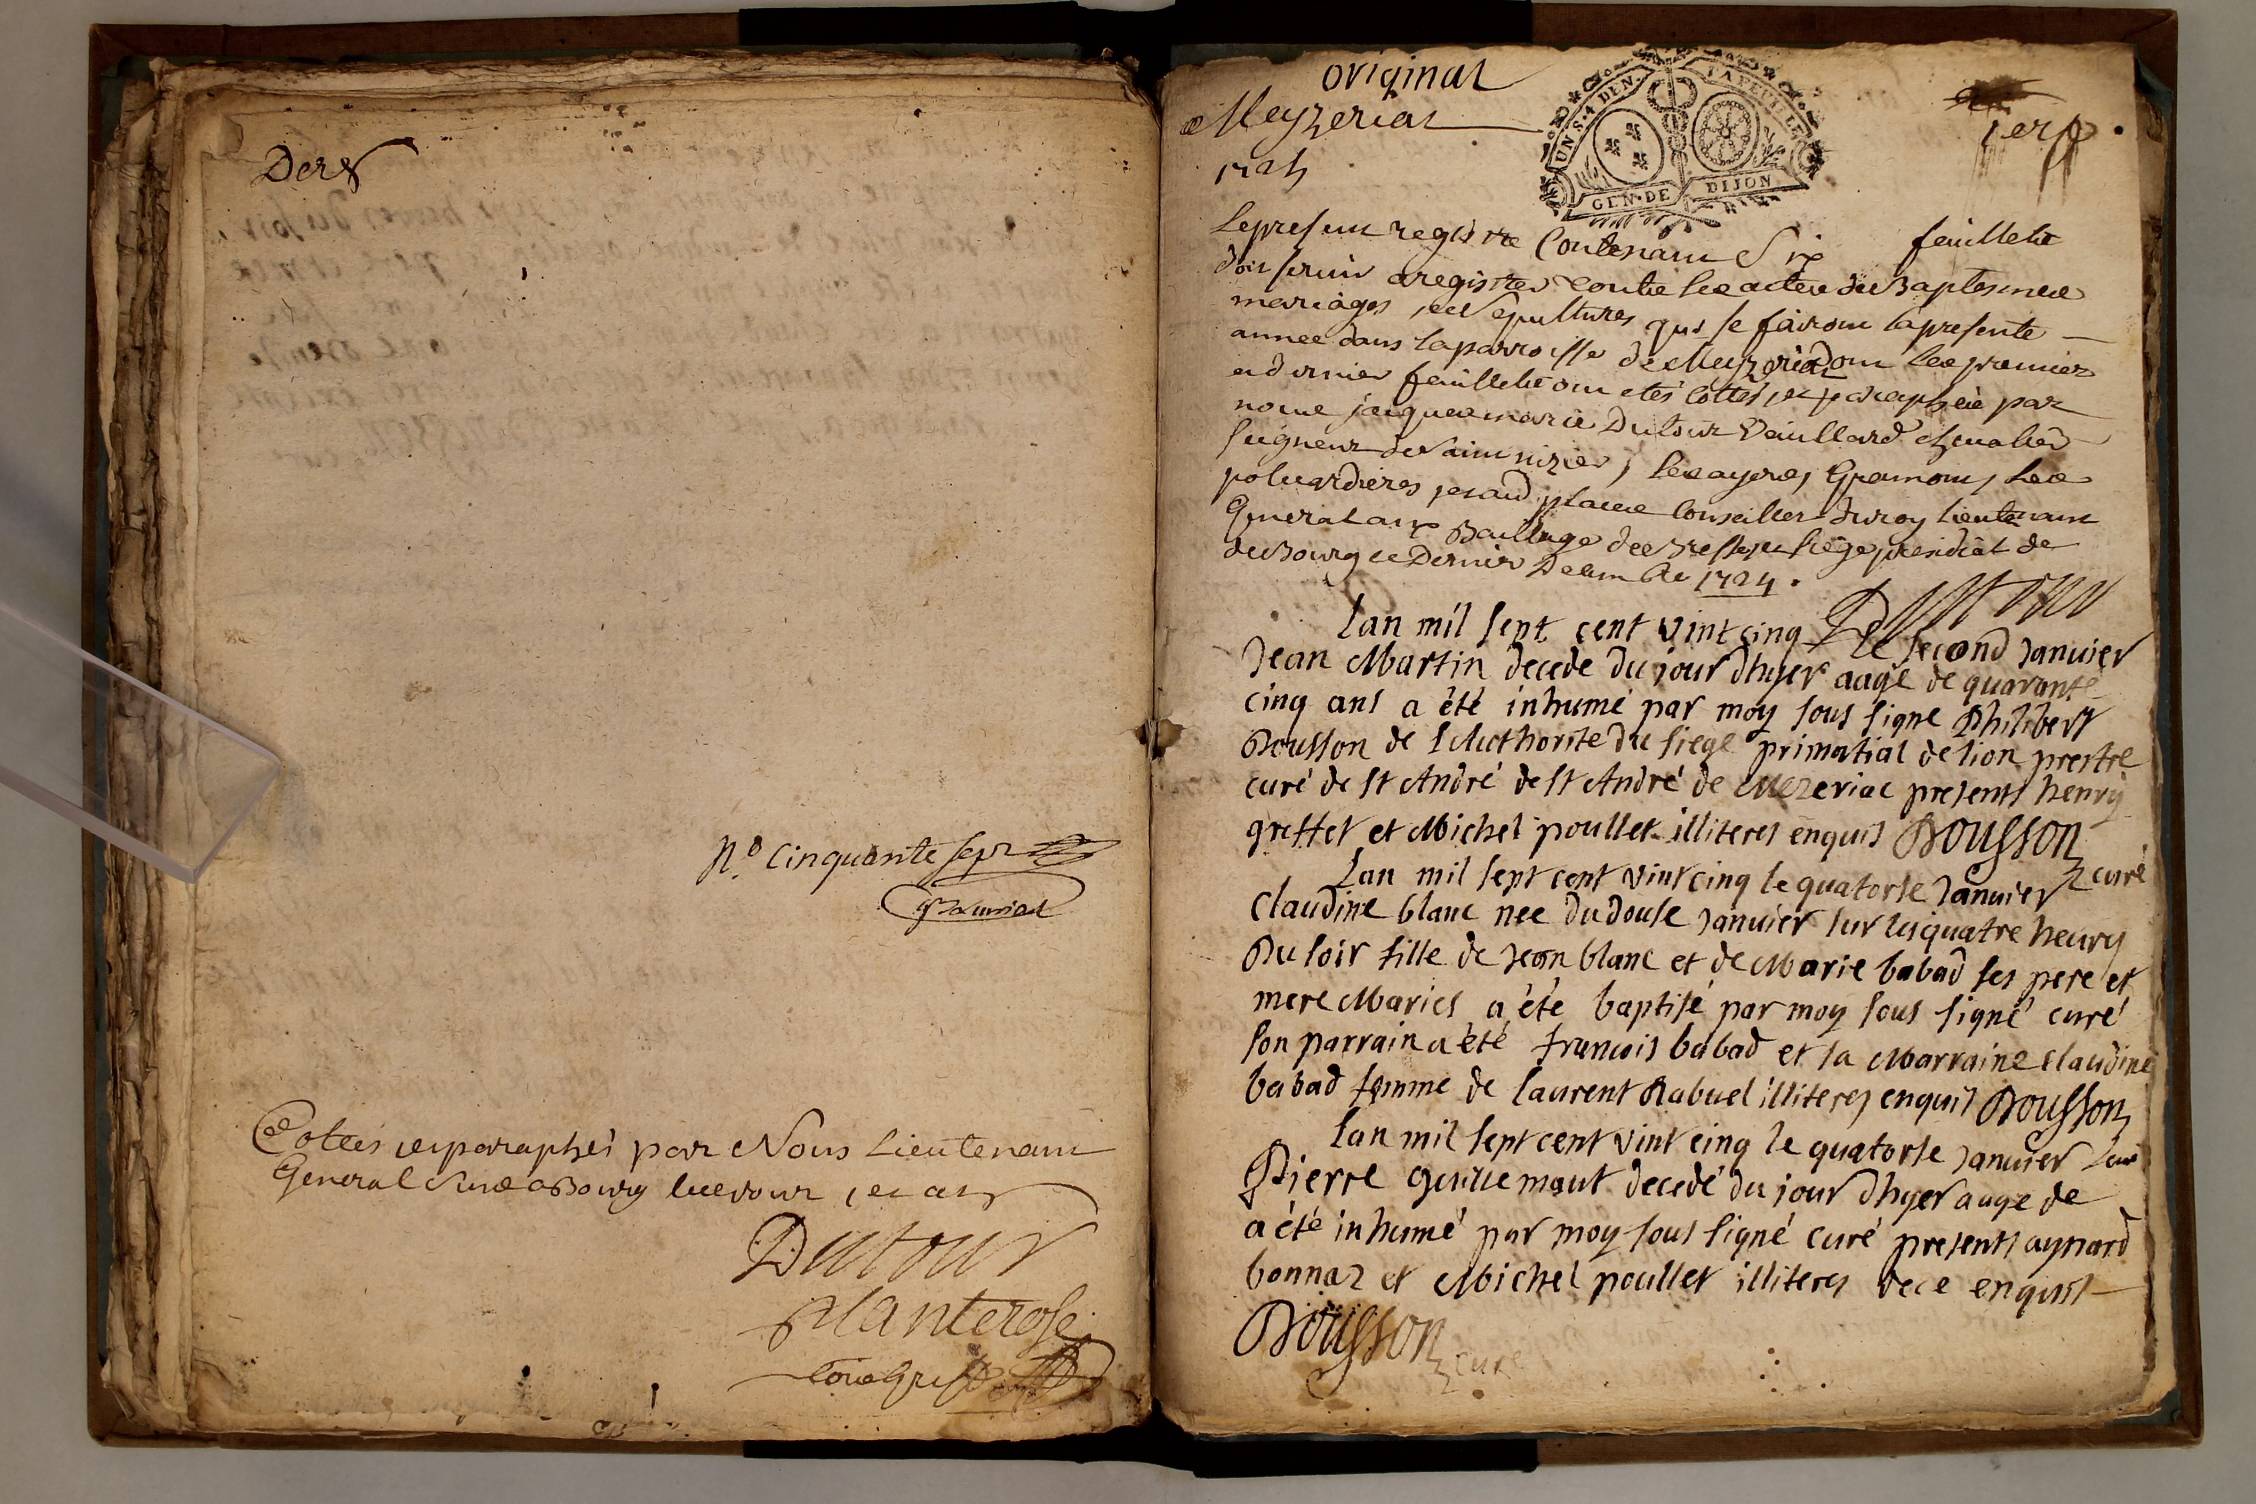 Der
N.o Cinquante sept
Cottés et paraphés par Nous Lieutenant
General
Dutour
Planterose
original
Meyzeriat
1725
UN S. 4 DEN. LA FEUILLE
GEN. DE DIJON
per
Le present registre Contenant Six feuillets
doit servir a registrer les actes de Baptesmes
mariages et Sepultures qui se fairont la presente
annee dans la parroisse de Meyzeriat dont les premier
et dernier feuillet ont etés cottés et paraphés par
nous jacques marie Dutour Vuillard chevalier
seigneur de Saint nizier, les ayeres, Gramont, les
poluardieres et aud places Conseiller du roy lieutenant
General aux Bailliage de Bresse et siege presidial de
de Bourg ce Dernier Decembre 1724.
Dutour
Lan mil sept cent vint cinq le second Janvier
Jean Martin decede du jour dhyer aagé de quarante
cinq ans a été inhumé par moy sous signe Philibert
Bousson de lAuthorite du siege primatial de lion prestre
curé de st André de st André de Mezeriac presents henry
greffet et Michel poullet illiteres enquis Bousson
curé
Lan mil sept cent vint cinq le quatorse Janvier
Claudine blanc nee du douse Janvier sur les quatre heures
Du soir fille de Jean blanc et de Marie babad ses pere et
mere Mariés a été baptisé par moy sous signé curé
son parrain a été francois babad et sa Marraine Claudine
babad femme de laurent Rabuel illiteres enquis Bousson
Lan mil sept cent vint cinq le quatorse Janvier
Pierre Guillemaut decedé du jour dhyer aage de
a été inhumé par moy sous signé curé presents aynard
bonnaz et Michel poullet illiteres de ce enquis
Bousson curé